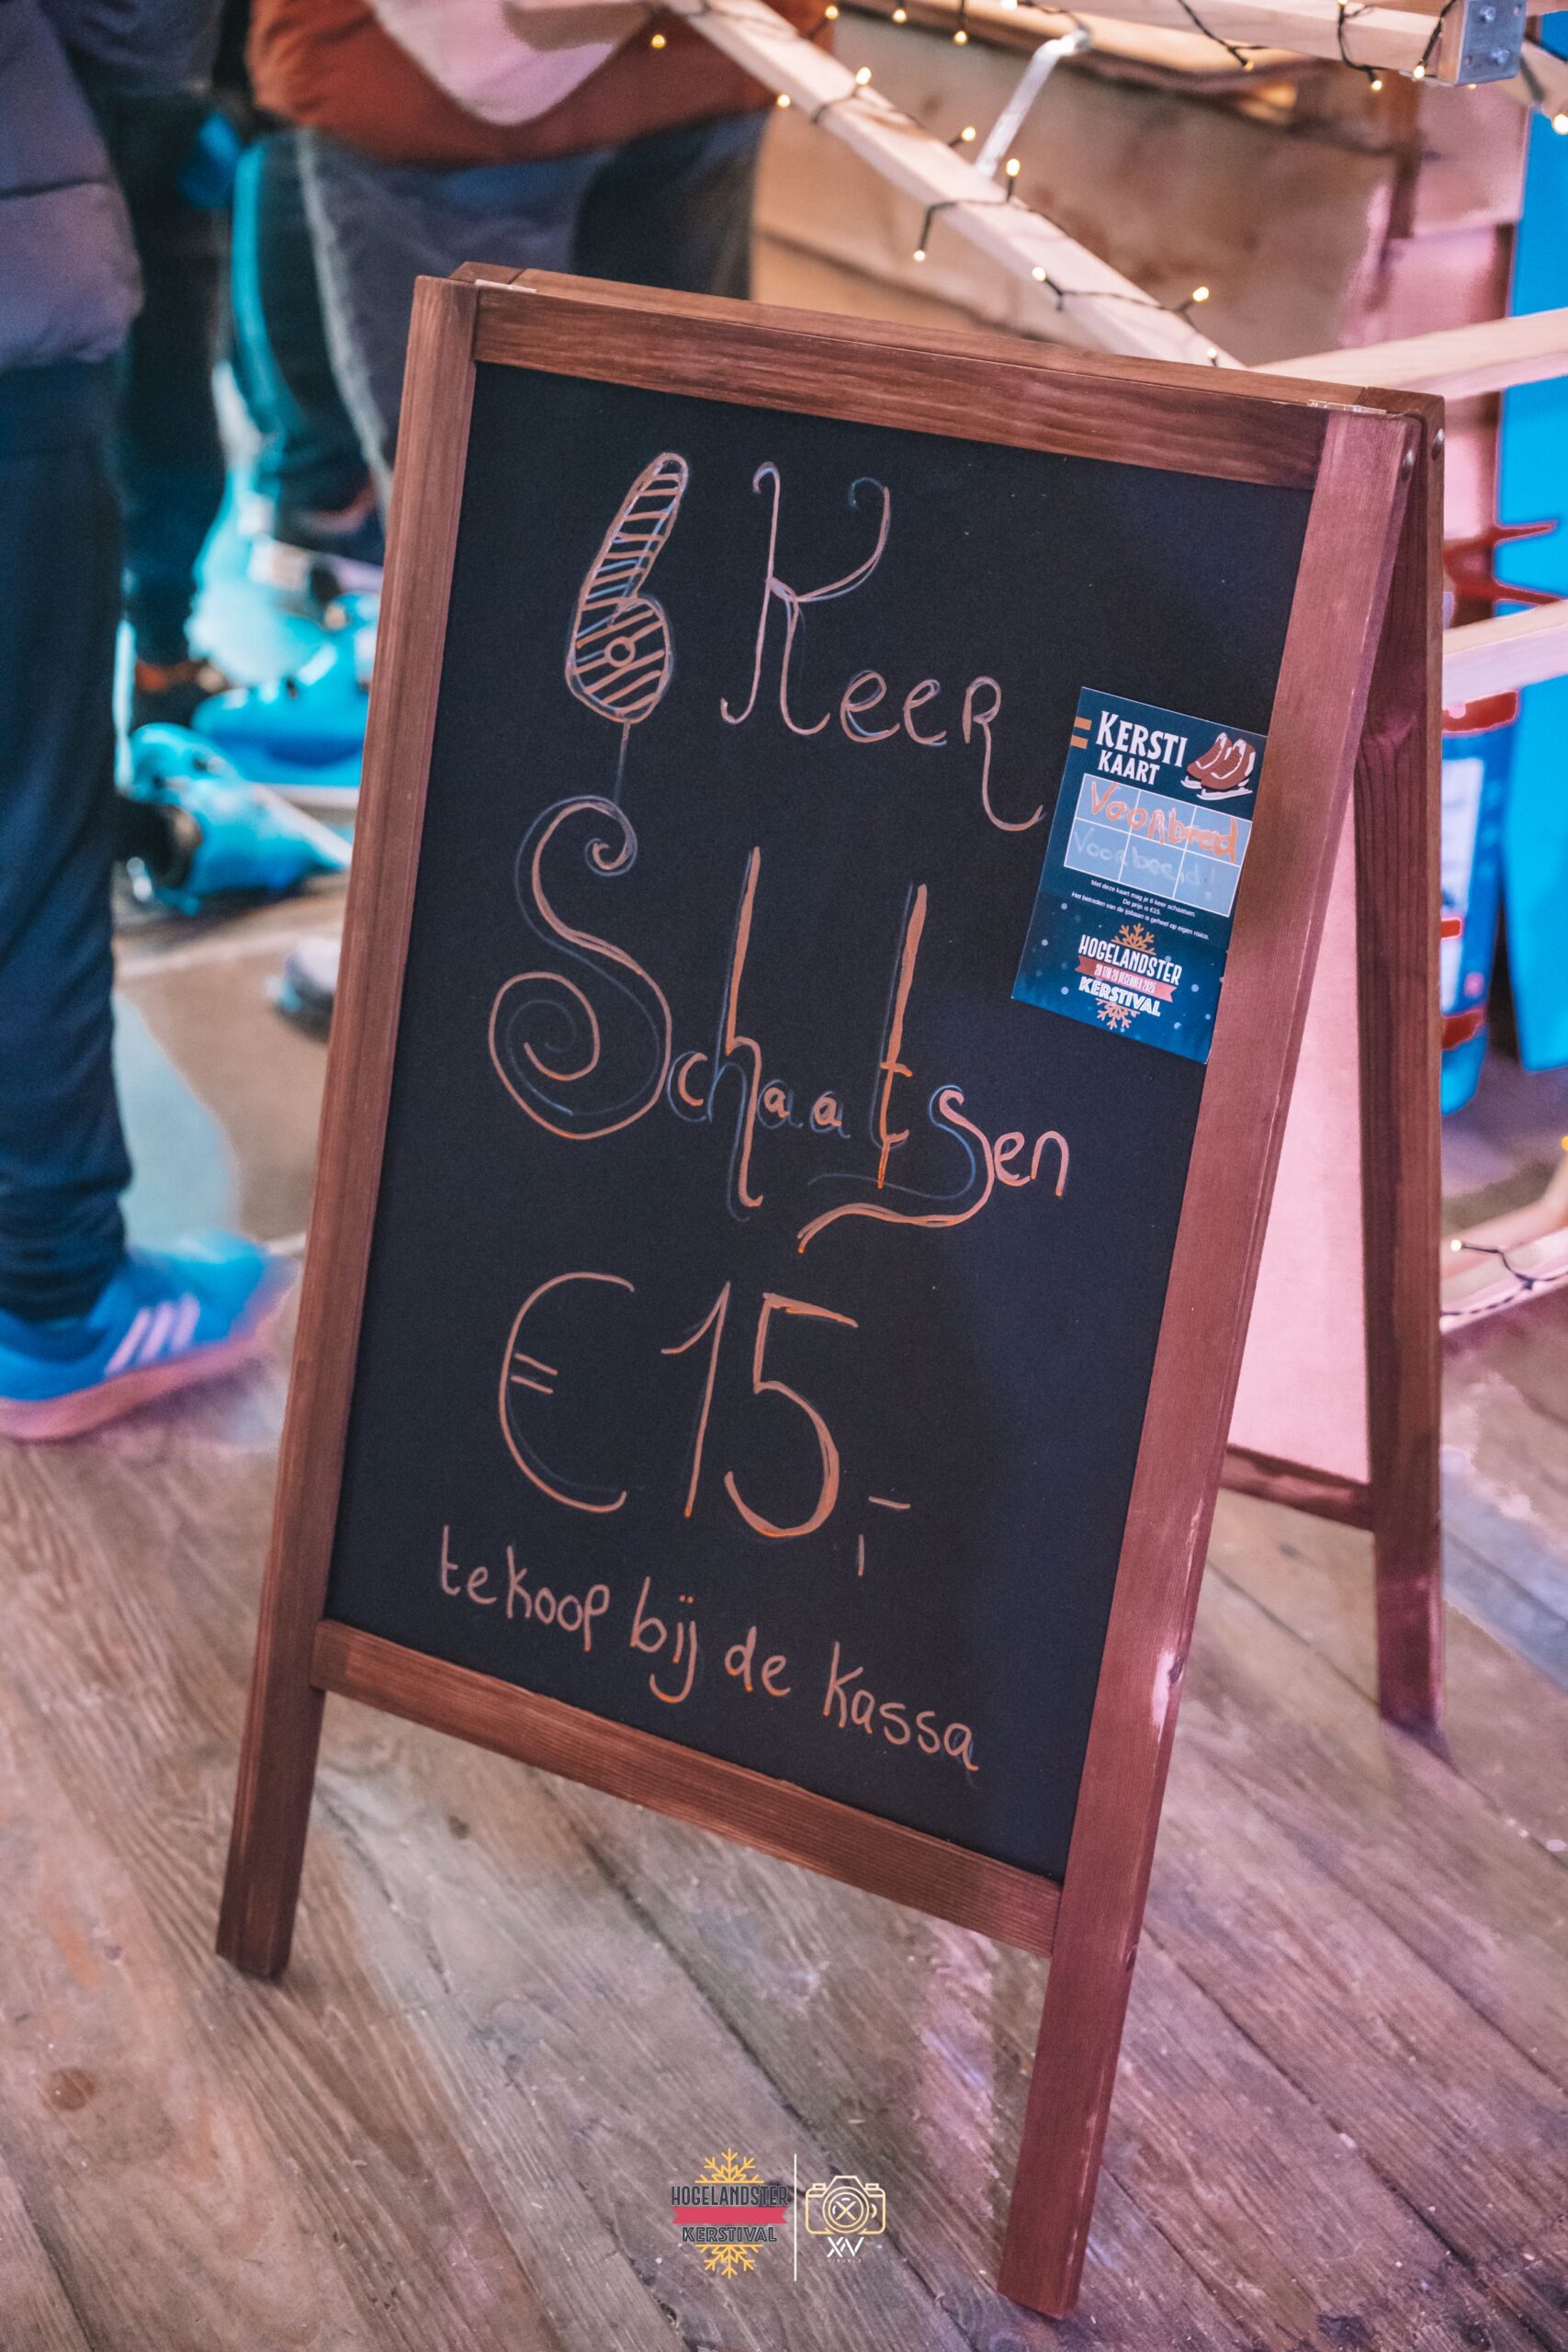 6 Keer
Schaatsen
€15,-
te koop bij de kassa
KERSTI
KAART
Voorbeeld
Voorbeeld!
Met deze kaart mag je 6 keer schaatsen.
De prijs is €15.
Het betreden van de ijsbaan is geheel op eigen risico.
HOGELANDSTER
KERSTIVAL
HOGELANDSTER
KERSTIVAL